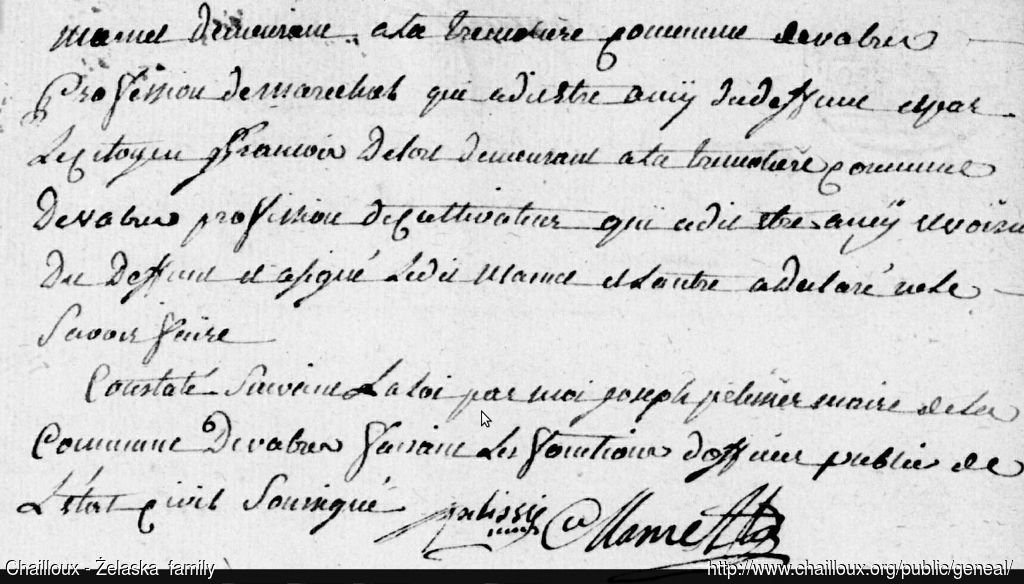 mamet demeurant a la tremoliere commune devabres
profession de marechal qui a dit etre amÿ du deffunt et par
Le citoyen francois Delort demeurant a la tremoliere commune
Devabres profession de cultivateur qui a dit etre amÿ et voisin
Du Deffunt et a signé Ledit mamet et Lautre a declaré ne Le
Savoir faire
Constaté Suivant La loi par moi joseph pelissier maire de la
Commune Devabres faisant Les fonctions dofficier public de
L'état civil Soussigné pelissier maire Mamet
Chailloux - Żelaska family http://www.chailloux.org/public/geneal/